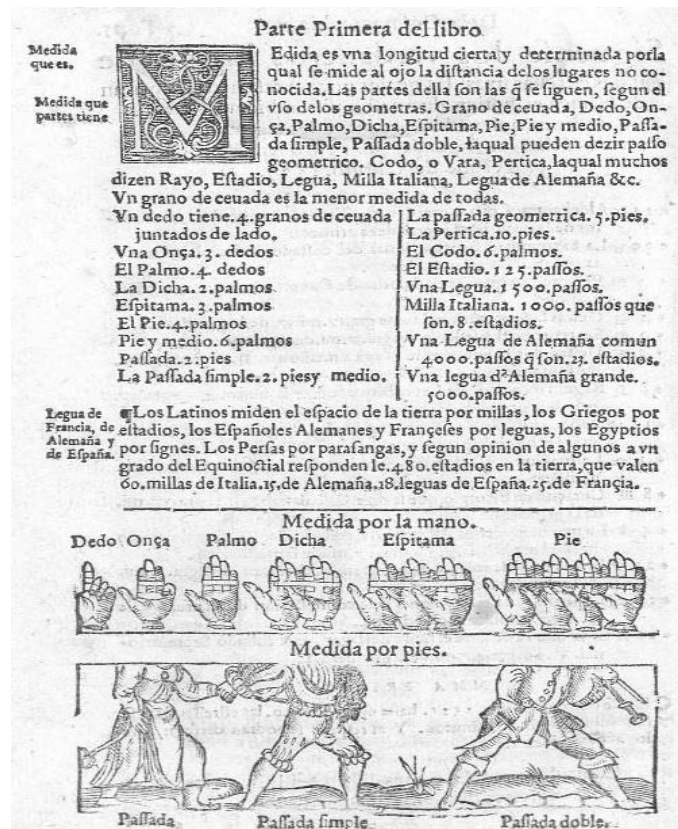 Parte Primera del libro
Medida
que es.
Medida que
partes tiene
MEdida es vna longitud cierta y determinada porla
qual ſe mide al ojo la diſtancia delos lugares no co-
nocida. Las partes della ſon las q̄ ſe ſiguen, ſegun el
vſo delos geometras. Grano de ceuada, Dedo, On-
ça, Palmo, Dicha, Eſpitama, Pie, Pie y medio, Paſſa-
da ſimple, Paſſada doble, laqual pueden dezir paſſo
geometrico. Codo, o Vara, Pertica, laqual muchos
dizen Rayo, Eſtadio, Legua, Milla Italiana, Legua de Alemaña &c.
Vn grano de ceuada es la menor medida de todas.
Vn dedo tiene. 4. granos de ceuada
juntados de lado.
Vna Onça. 3. dedos
El Palmo. 4. dedos
La Dicha. 2. palmos
Eſpitama. 3. palmos
El Pie. 4. palmos
Pie y medio. 6. palmos
Paſſada. 2. pies
La Paſſada ſimple. 2. piesy medio.
La paſſada geometrica. 5. pies.
La Pertica. 10. pies.
El Codo. 6. palmos.
El Eſtadio. 1 2 5. paſſos.
Vna Legua. 1 500. paſſos.
Milla Italiana. 1000. paſſos que
ſon. 8. eſtadios.
Vna Legua de Alemaña comun
4000. paſſos q̄ ſon. 23. eſtadios.
Vna legua d'Alemaña grande.
5000. paſſos.
Legua de
Francia, de
Alemaña y
de Eſpaña.
¶Los Latinos miden el eſpacio de la tierra por millas, los Griegos por
eſtadios, los Eſpañoles Alemanes y Françeſes por leguas, los Egyptios
por ſignes. Los Perſas por paraſangas, y ſegun opinion de algunos a vn
grado del Equinoctial reſponden le. 480. eſtadios en la tierra, que valen
60. millas de Italia. 15. de Alemaña, 18. leguas de Eſpaña. 25. de Françia.
Medida por la mano.
Dedo Onça Palmo Dicha Eſpitama Pie
Medida por pies.
Paſſada Paſſada ſimple Paſſada doble.